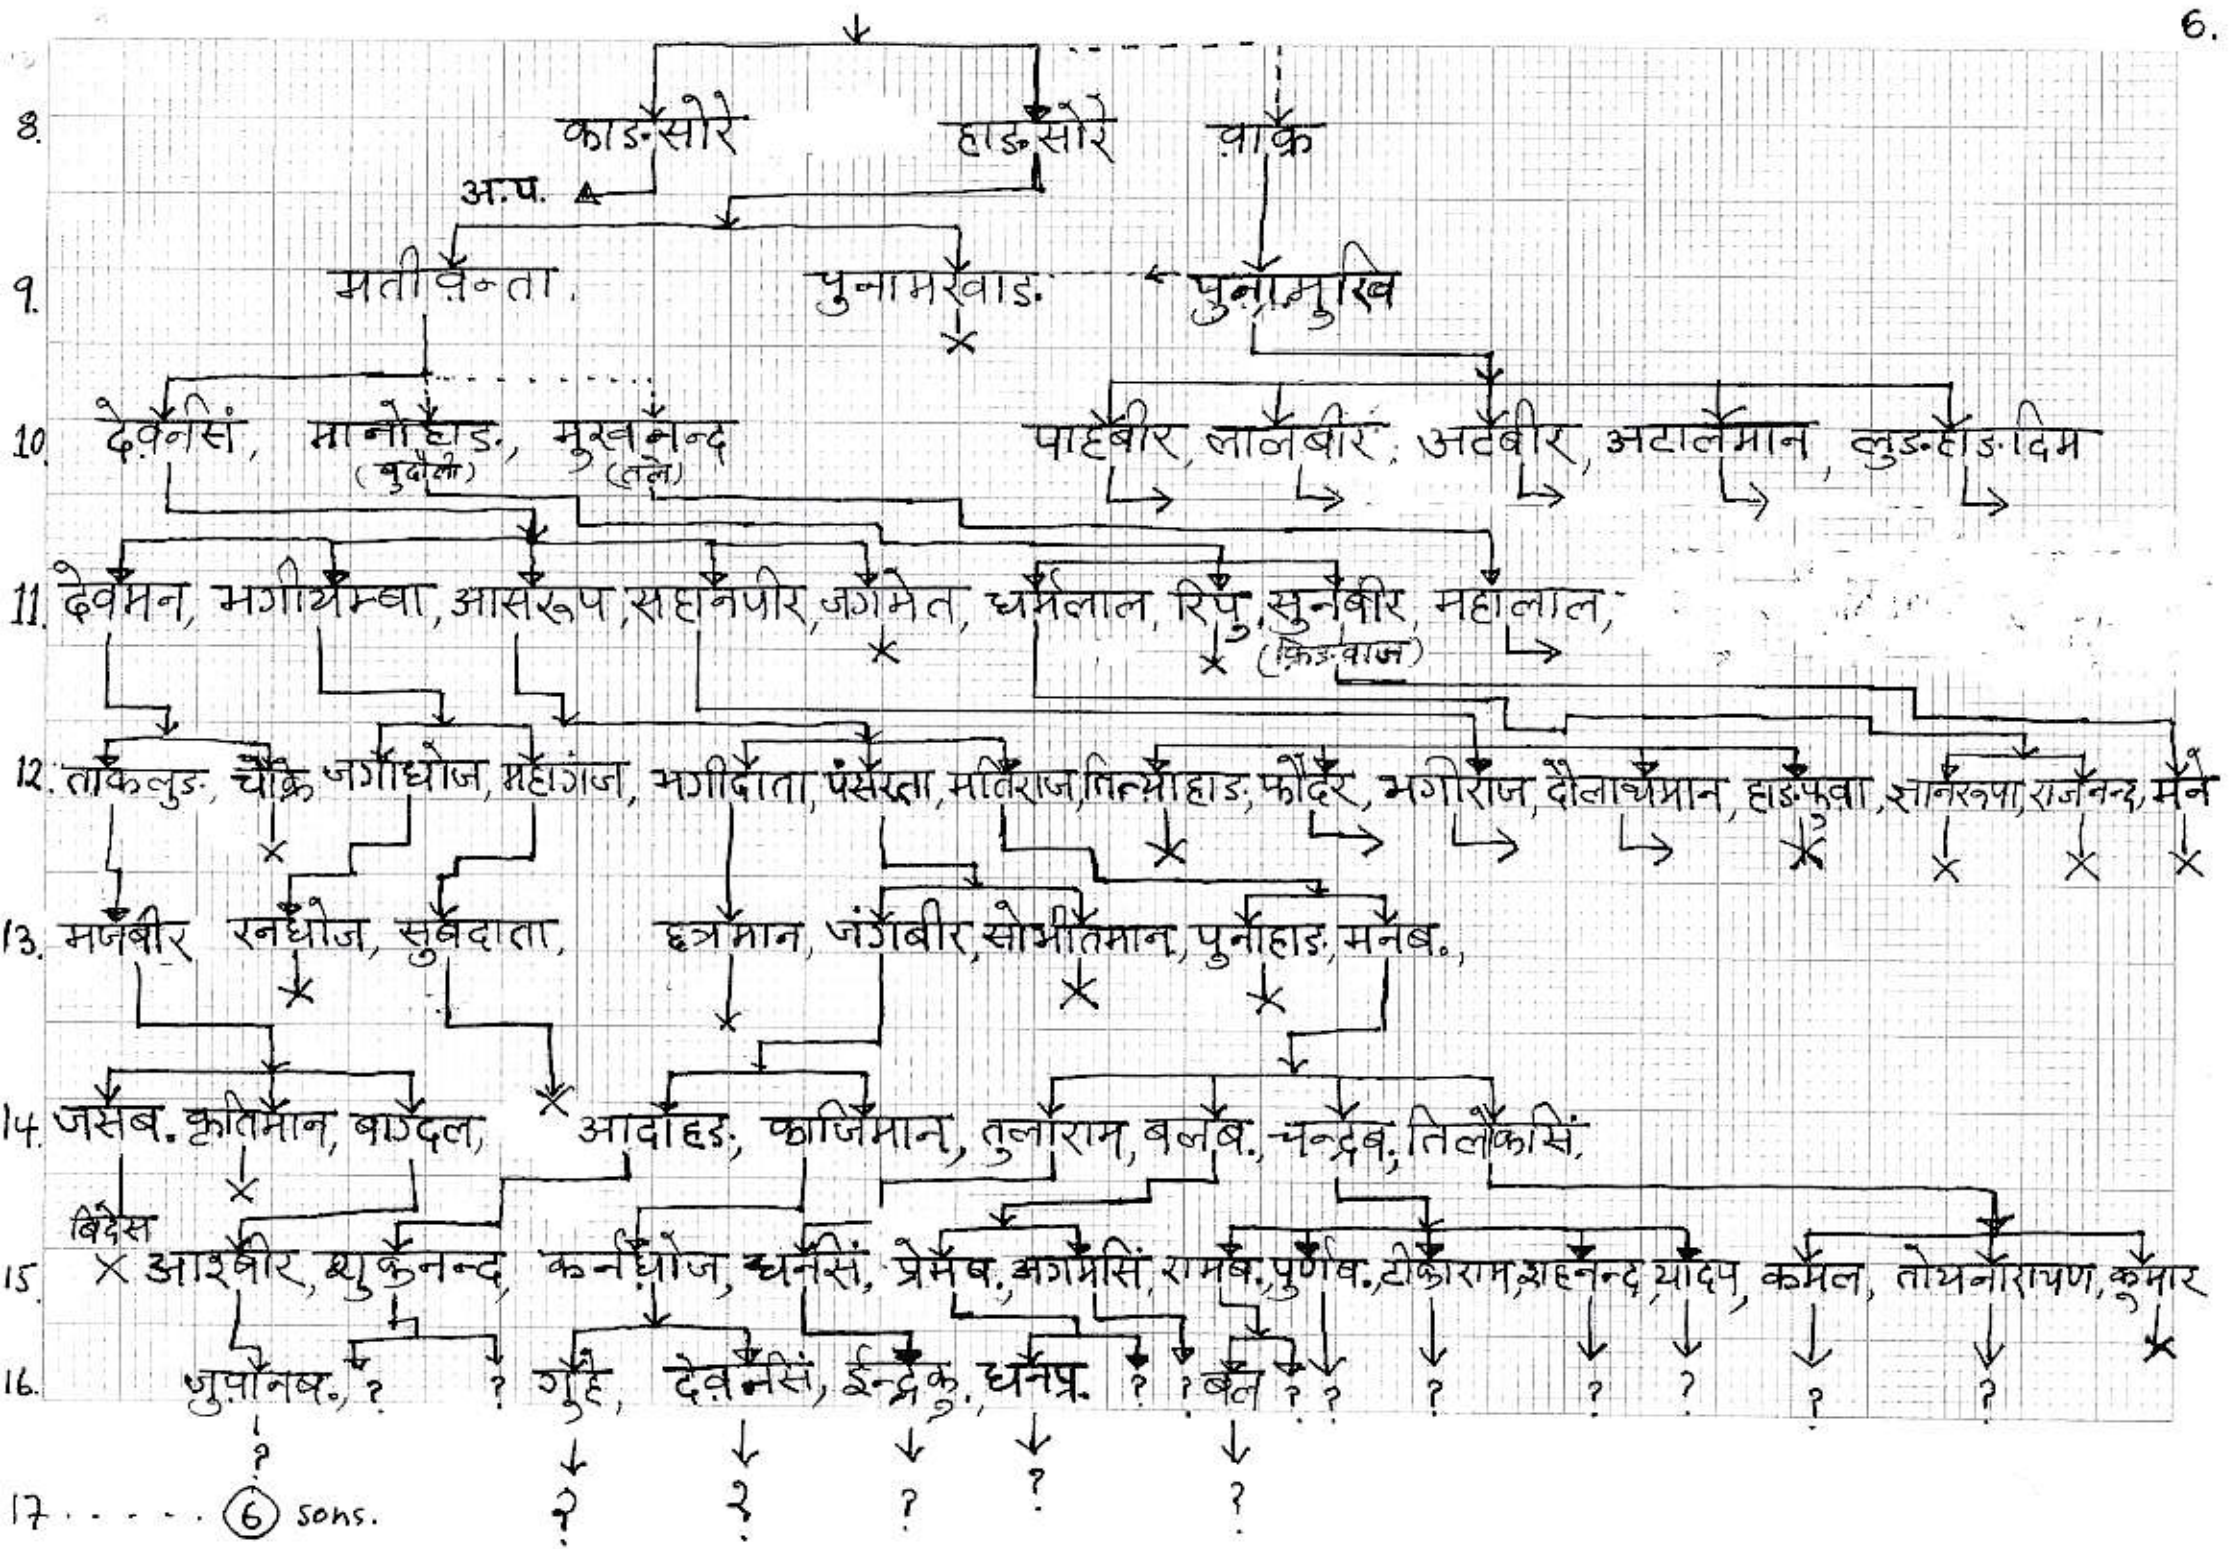 6.
8. काङसोरे हाङसोरे वाक्रे
अ.प.
9. मतीवन्ता, पुनामखाङ पुनामुखि
10. देवनसिं, मानोहाङ, मुखनन्द पाहबीर, लालबीर, अटबीर, अटालमान, लुङहाङदिम
(बुदौली) (तल)
11. देवमन, भगीयम्बा, आसरूप, सहानपीर, जगमेत, धर्मलाल, रिपु, सुनबीर, महालाल,
12. ताकलुङ, चौक्रे जगाधोज, महागंज, भगीदाता, मतिराज, फौदर, भगीराज, हाङफुवा, ज्ञानरूपा, राजनन्द, मने
13. मजबीर रनधोज, सुबदाता, छत्रमान, जंगबीर, सोभीतमान, पुनाहाङ, मनब.,
14. जसब. कृतिमान, बागदल, आदाहङ, काजिमान, तुलाराम, बलब., चन्द्रब., तिलकसिं,
बिदेस
15. आइबीर, शुकनन्द, कर्नधोज, धनसिं, प्रेमब., अगमसिं, रामब., पुर्णब., टीकाराम, यादप, कमल, तोयनारायण, कुमार
16. जुपानब., ? ? गुहे, देवनसिं, ईन्द्रकु., धनप्र. ? ? बल ? ? ? ? ? ? ?
?
17. . . . . . 6 sons. ? ? ? ? ?